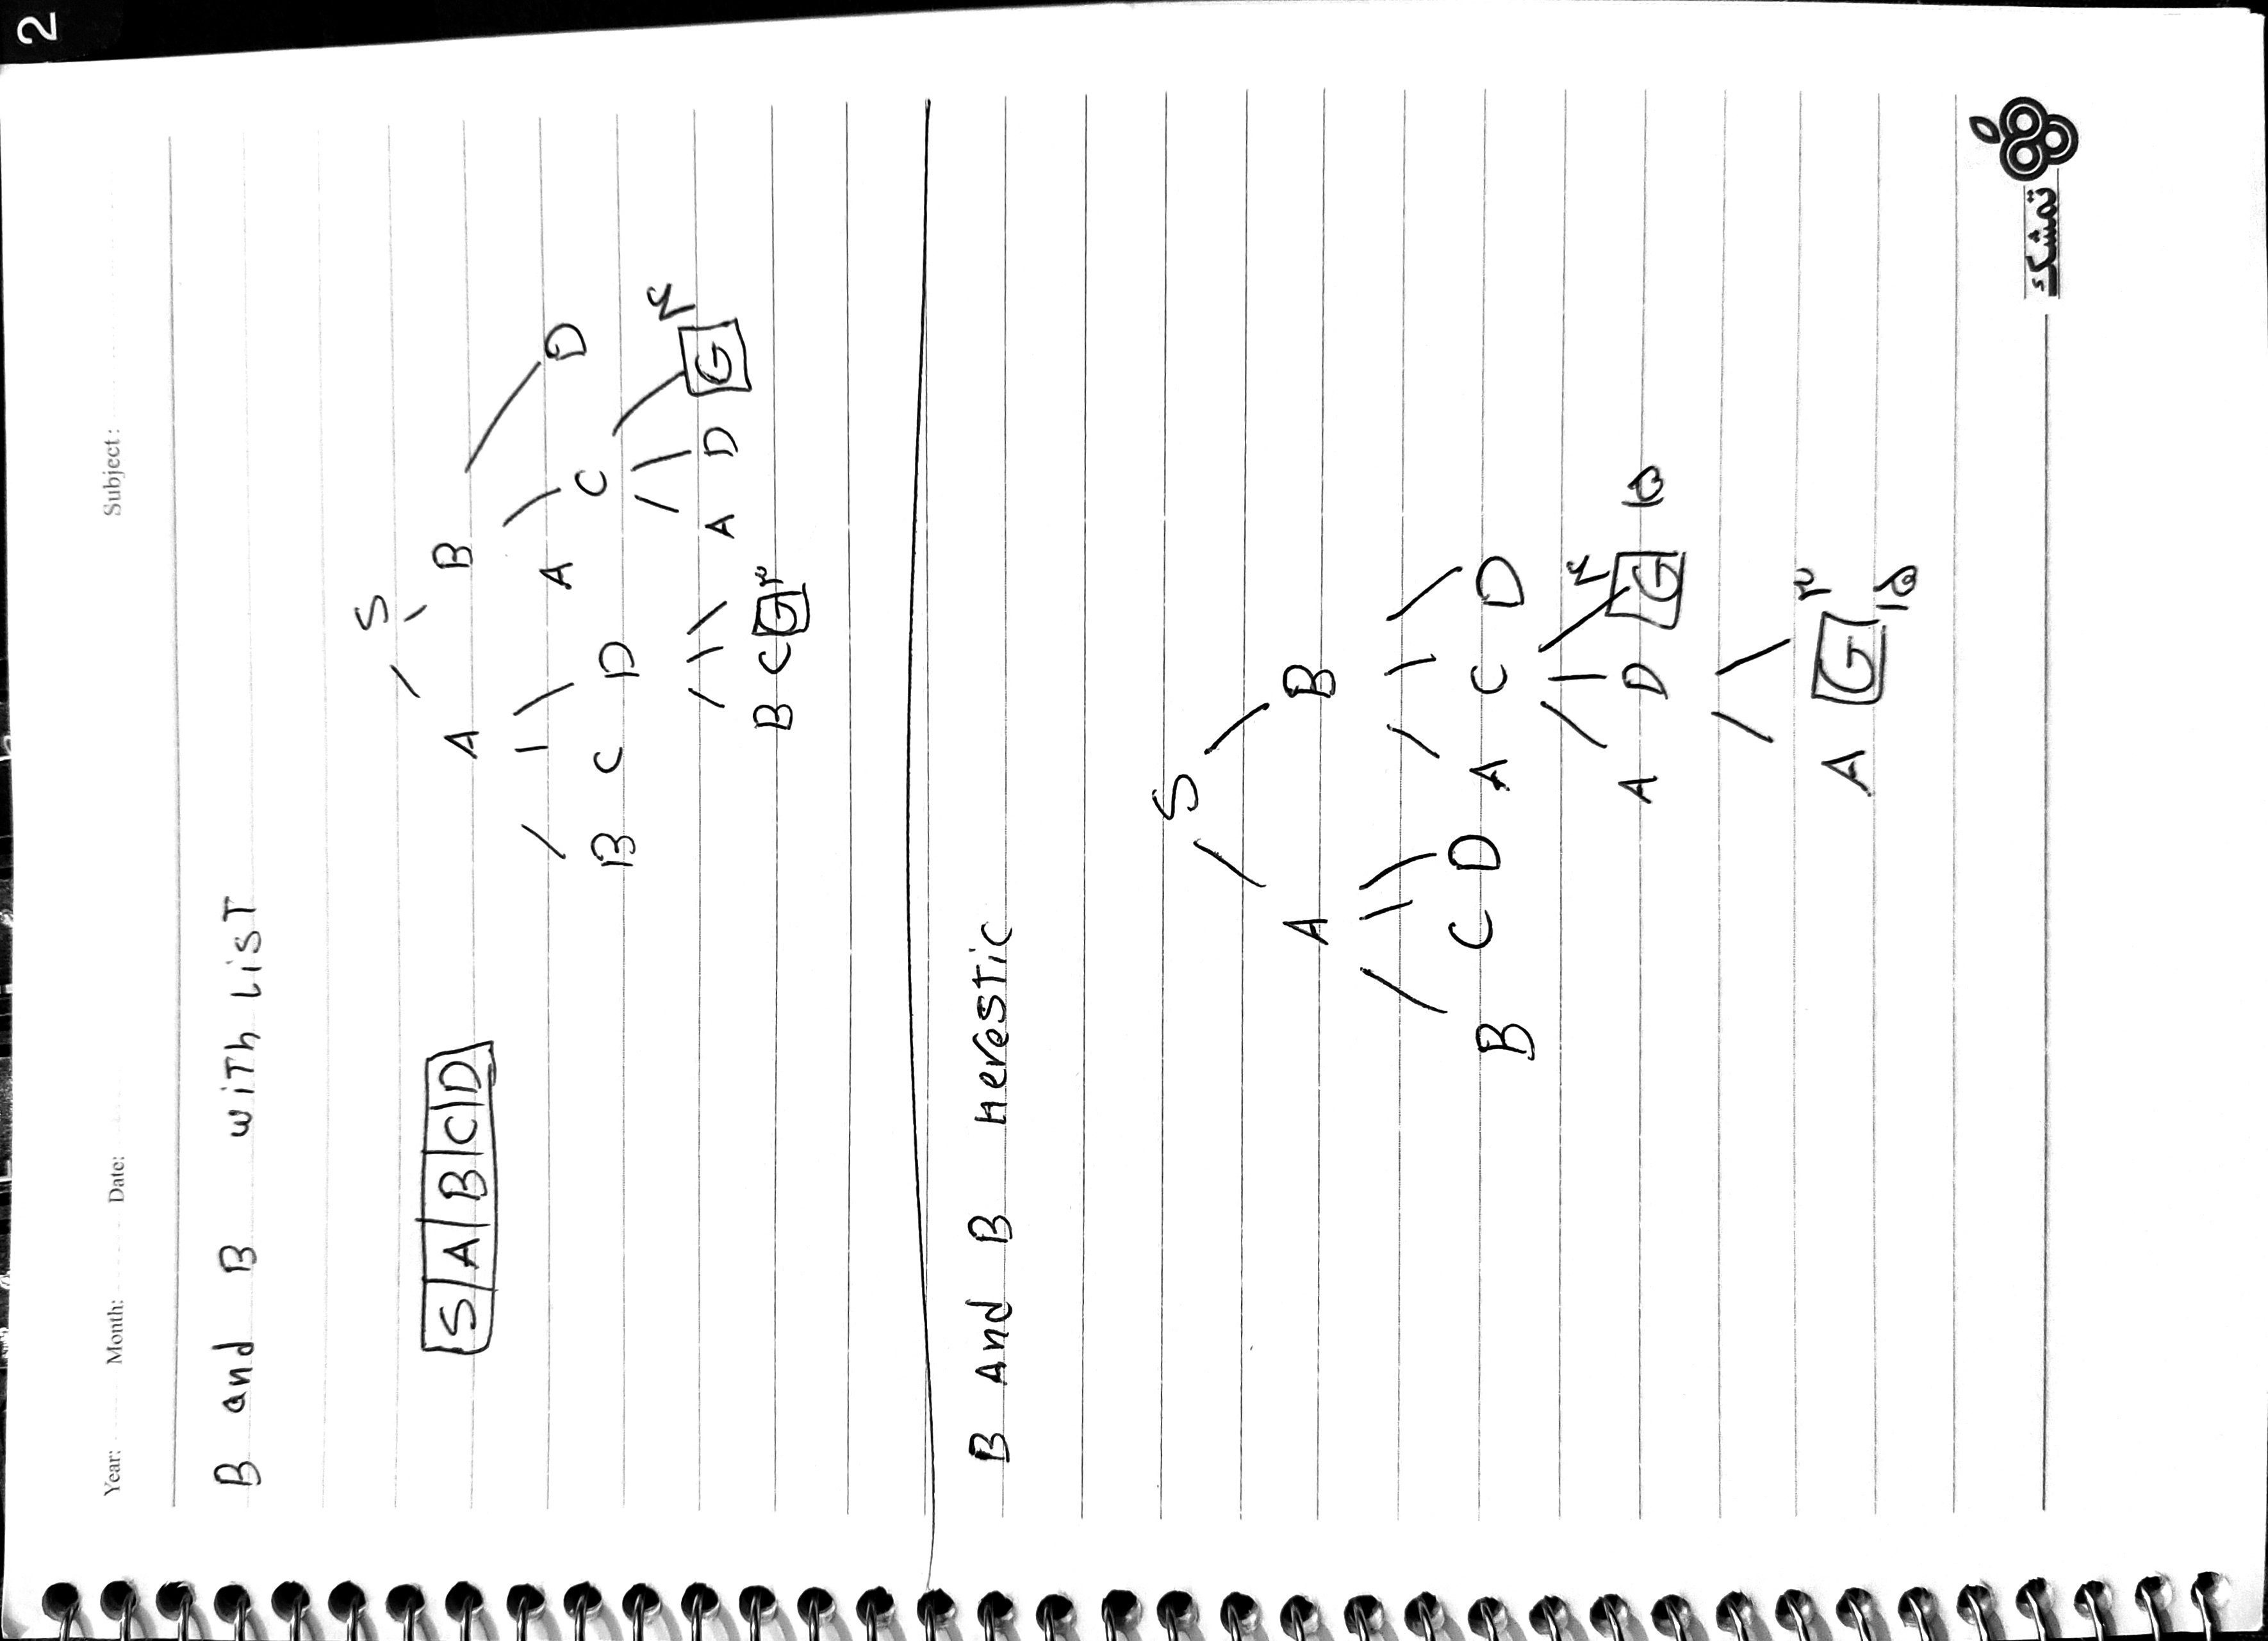 2
Year: Month: Date: Subject:
B and B with List
S
S A B C D
A B
A D
B C D C
A D G ۲
B C G ۳
B And B Herestic
S
A B
B C D A C D
۲
A D G ۱۵
A G ۳
۱۵
تمشک